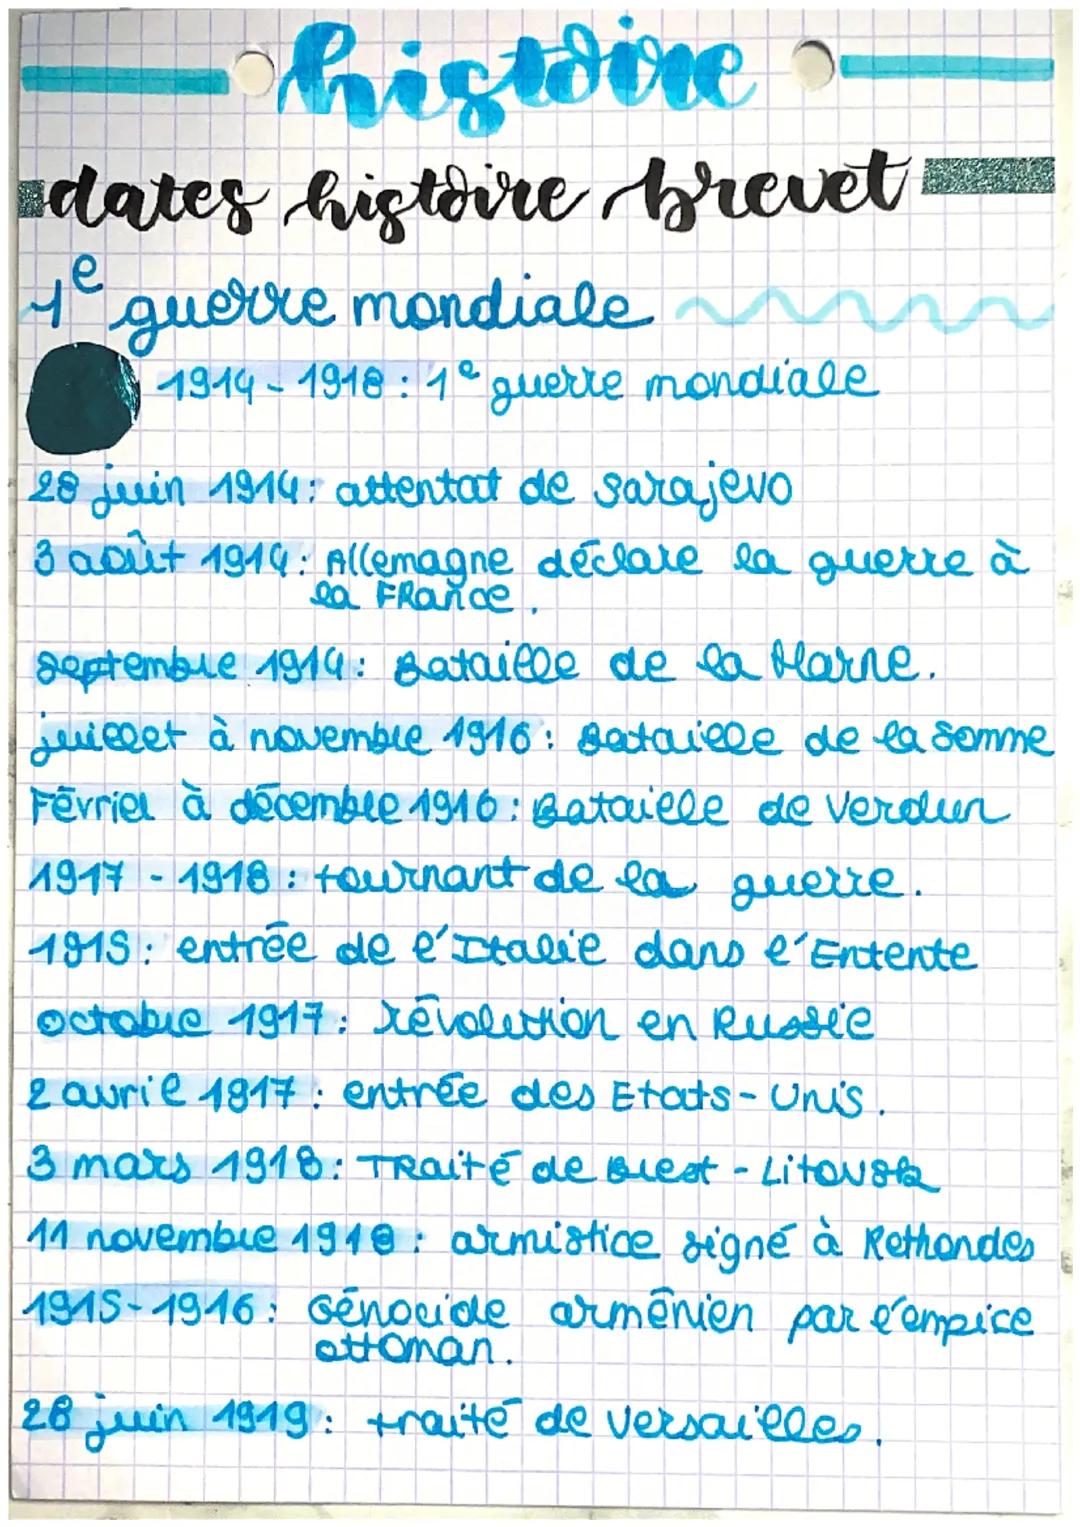 histoire
dates histoire brevet
1e guerre mondiale
1914 - 1918 : 1e guerre mondiale
28 juin 1914 : attentat de sarajevo
3 août 1914 : Allemagne déclare la guerre à
la FRance.
septembre 1914 : Bataille de la Marne.
juillet à novembre 1916 : Bataille de la Somme
Février à décembre 1916 : Bataille de Verdun
1917 - 1918 : tournant de la guerre.
1915 : entrée de l'Italie dans l'Entente
octobre 1917 : révolution en Russie
2 avril 1917 : entrée des Etats - Unis.
3 mars 1918 : TRaité de Brest - Litovsk
11 novembre 1918 : armistice signé à Rethondes
1915 - 1916 : Génocide arménien par l'empire
ottoman.
28 juin 1919 : traité de versailles.